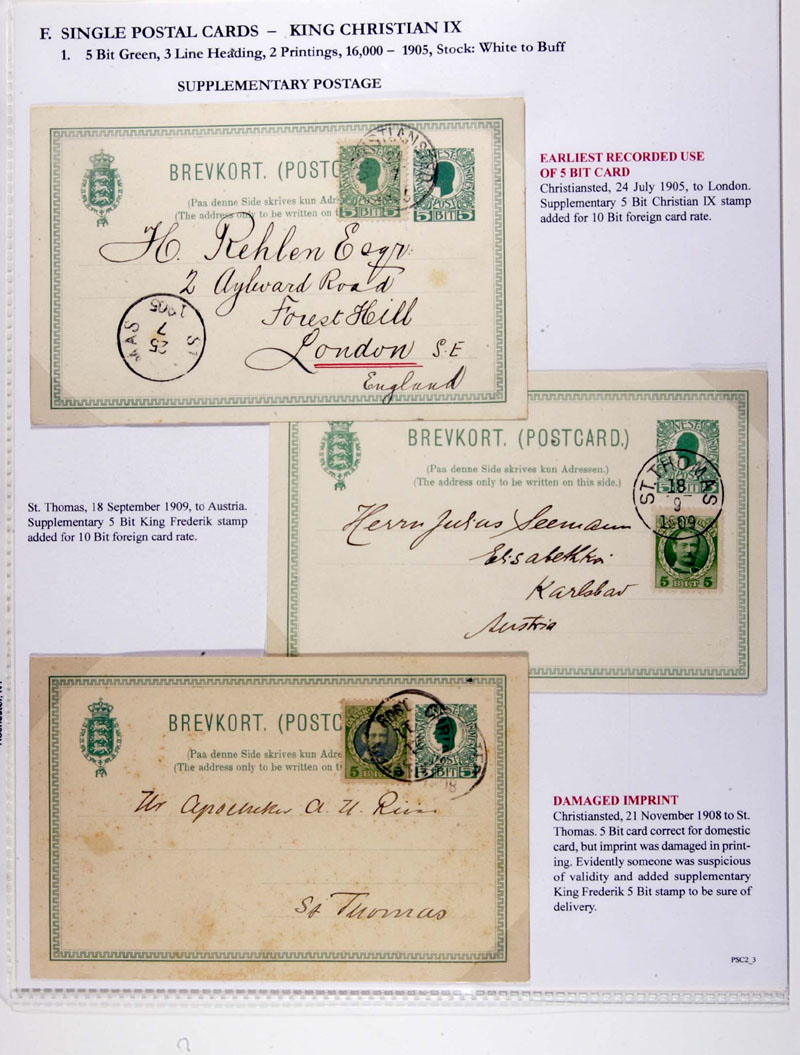 F. SINGLE POSTAL CARDS – KING CHRISTIAN IX
1. 5 Bit Green, 3 Line Heading, 2 Printings, 16,000 – 1905, Stock: White to Buff
SUPPLEMENTARY POSTAGE
BREVKORT. (POSTC
(Paa denne Side skrives kun Adr
(The address only to be written on
5 BIT 5
5 BIT 5
H. Rehlen Esqr.
2 Aylward Road
Forest Hill
London S.E
England
1905
7
25
ST
MAS
EARLIEST RECORDED USE
OF 5 BIT CARD
Christiansted, 24 July 1905, to London.
Supplementary 5 Bit Christian IX stamp
added for 10 Bit foreign card rate.
BREVKORT. (POSTCARD.)
(Paa denne Side skrives kun Adressen.)
(The address only to be written on this side.)
ST. THOMAS
18
9
1909
5 BIT 5
Herrn Julius Seemann
Karlsbad
Austria
St. Thomas, 18 September 1909, to Austria.
Supplementary 5 Bit King Frederik stamp
added for 10 Bit foreign card rate.
BREVKORT. (POSTC
(Paa denne Side skrives kun Adre
(The address only to be written on t
5 BIT
BIT 5
Hr Apotheker A. H. Riise
St Thomas
DAMAGED IMPRINT
Christiansted, 21 November 1908 to St.
Thomas. 5 Bit card correct for domestic
card, but imprint was damaged in print-
ing. Evidently someone was suspicious
of validity and added supplementary
King Frederik 5 Bit stamp to be sure of
delivery.
PSC2_3